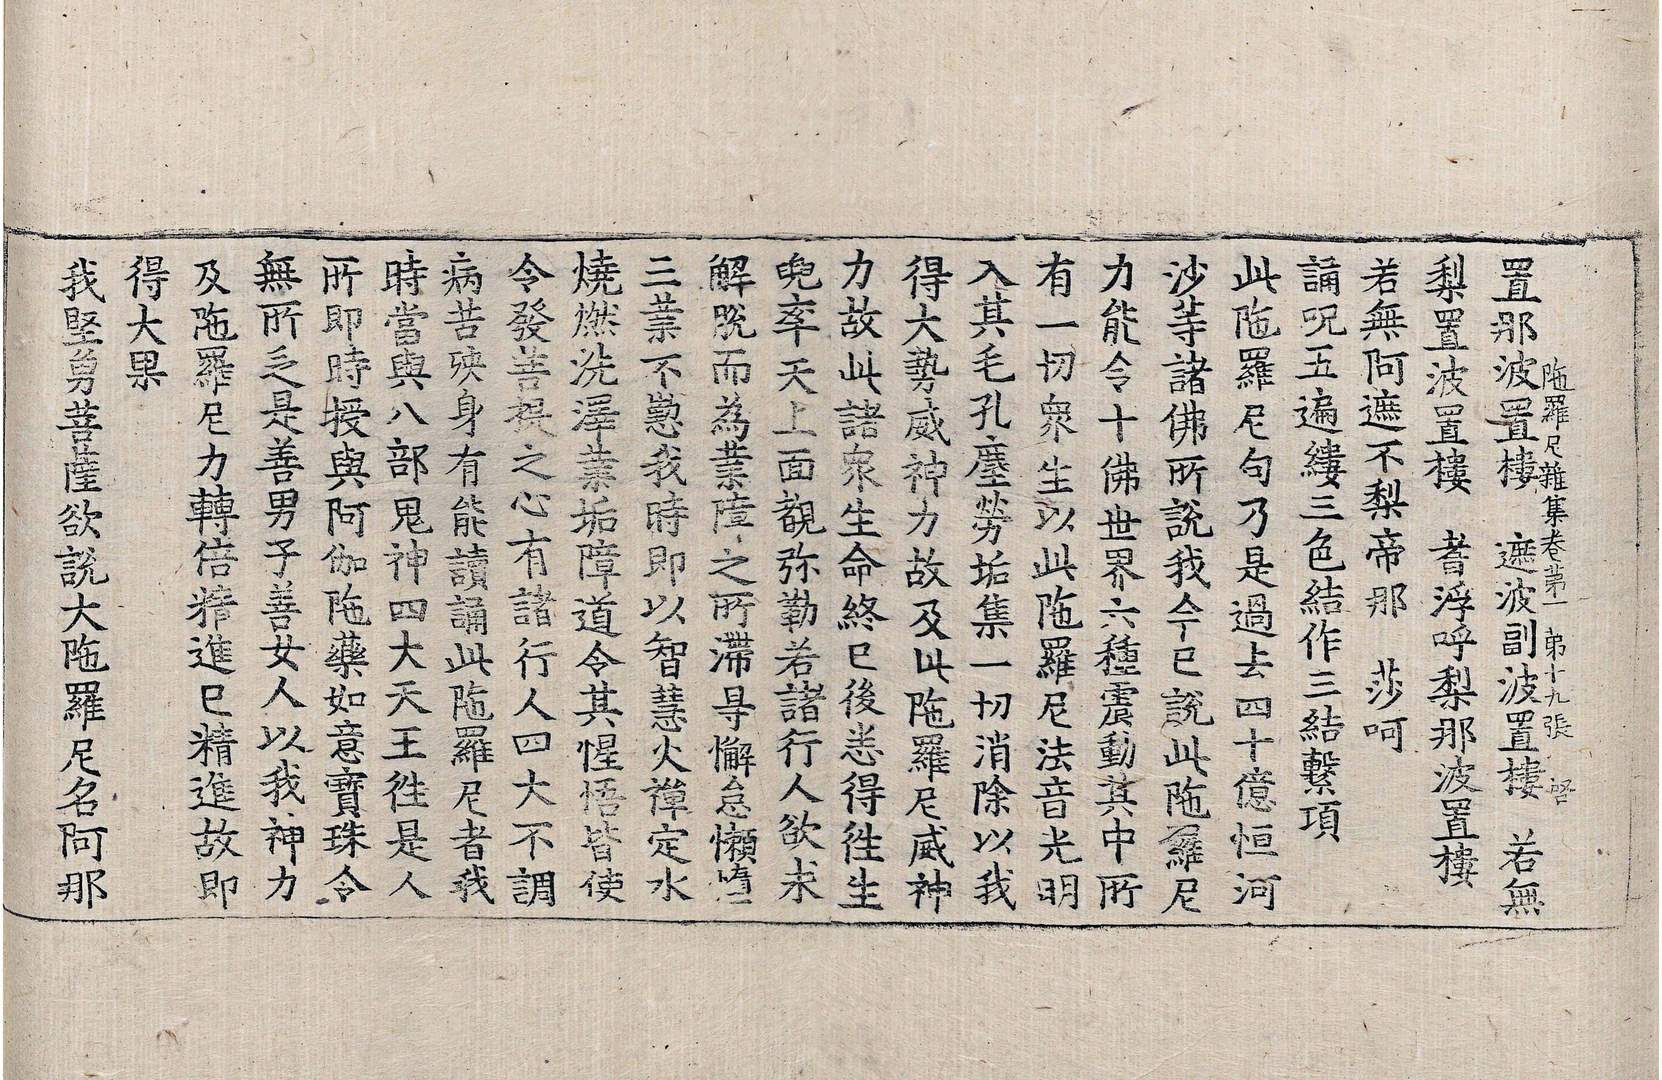 陁羅尼雜集卷第一　第十九張　啓
置那波置樓　遮波副波置樓　若無
梨置波置樓　耆浮呼梨那波置樓
若無阿遮不梨帝那　莎呵
誦呪五遍縷三色結作三結繫項
此陁羅尼句乃是過去四十億恒河
沙等諸佛所說我今已說此陁羅尼
力能令十佛世界六種震動其中所
有一切衆生以此陁羅尼法音光明
入其毛孔塵勞垢集一切消除以我
得大勢威神力故及此陁羅尼威神
力故此諸衆生命終已後悉得徃生
兜率天上面覩弥勒若諸行人欲求
解脫而為業障之所滯㝵懈怠懶惰
三業不懃我時即以智慧火禪定水
燒燃洗澤業垢障道令其惺悟皆使
令發菩提之心有諸行人四大不調
病苦殃身有能讀誦此陁羅尼者我
時當與八部鬼神四大天王徃是人
所即時授與阿伽陁藥如意寶珠令
無所乏是善男子善女人以我神力
及陁羅尼力轉倍精進已精進故即
得大果
我堅勇菩薩欲說大陁羅尼名阿那